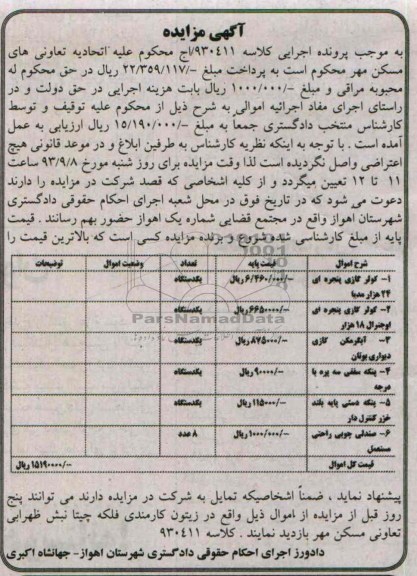 آگهی مزایده
به موجب پرونده اجرایی کلاسه ۹۳۰۴۱۱/اج محکوم علیه اتحادیه تعاونی های
مسکن مهر محکوم است به پرداخت مبلغ -/۲۲/۳۵۹/۱۱۷ ریال در حق محکوم له
محبوبه مراقی و مبلغ -/۱/۰۰۰/۰۰۰ ریال بابت هزینه اجرایی در حق دولت و در
راستای اجرای مفاد اجرائیه اموالی به شرح ذیل از محکوم علیه توقیف و توسط
کارشناس منتخب دادگستری جمعاً به مبلغ -/۱۵/۱۹۰/۰۰۰ ریال ارزیابی به عمل
آمده است . با توجه به اینکه نظریه کارشناس به طرفین ابلاغ و در موعد قانونی هیچ
اعتراضی واصل نگردیده است لذا وقت مزایده برای روز شنبه مورخ ۹۳/۹/۸ ساعت
۱۱ تا ۱۲ تعیین میگردد و از کلیه اشخاصی که قصد شرکت در مزایده را دارند
دعوت می شود که در تاریخ فوق در محل شعبه اجرای احکام حقوقی دادگستری
شهرستان اهواز واقع در مجتمع قضایی شماره یک اهواز حضور بهم رسانند . قیمت
پایه از مبلغ کارشناسی شده شروع و برنده مزایده کسی است که بالاترین قیمت را
شرح اموال قیمت پایه تعداد وضعیت اموال توضیحات
۱- کولر گازی پنجره ای -/۶/۴۶۰/۰۰۰ ریال یکدستگاه
۲۴ هزار مدیا
۲- کولر گازی پنجره ای -/۶۶۵۰۰۰۰ ریال یکدستگاه
اوجنرال ۱۸ هزار
۳- آبگرمکن گازی -/۸۷۵۰۰۰ ریال یکدستگاه
دیواری بوتان
۴- پنکه سقفی سه پره با -/۹۰۰۰۰ ریال یکدستگاه
درجه
۵- پنکه دستی پایه بلند -/۱۱۵۰۰۰ ریال یکدستگاه
خزر کنترل دار
۶- صندلی چوبی راحتی -/۱/۰۰۰/۰۰۰ ریال ۸ عدد
مستعمل
قیمت کل اموال -/۱۵۱۹۰۰۰۰ ریال
ParsNamadData
پیشنهاد نماید ، ضمناً اشخاصیکه تمایل به شرکت در مزایده دارند می توانند پنج
روز قبل از مزایده از اموال ذیل واقع در زیتون کارمندی فلکه چیتا نبش ظهرابی
تعاونی مسکن مهر بازدید نمایند . کلاسه ۹۳۰۴۱۱
دادورز اجرای احکام حقوقی دادگستری شهرستان اهواز- جهانشاه اکبری